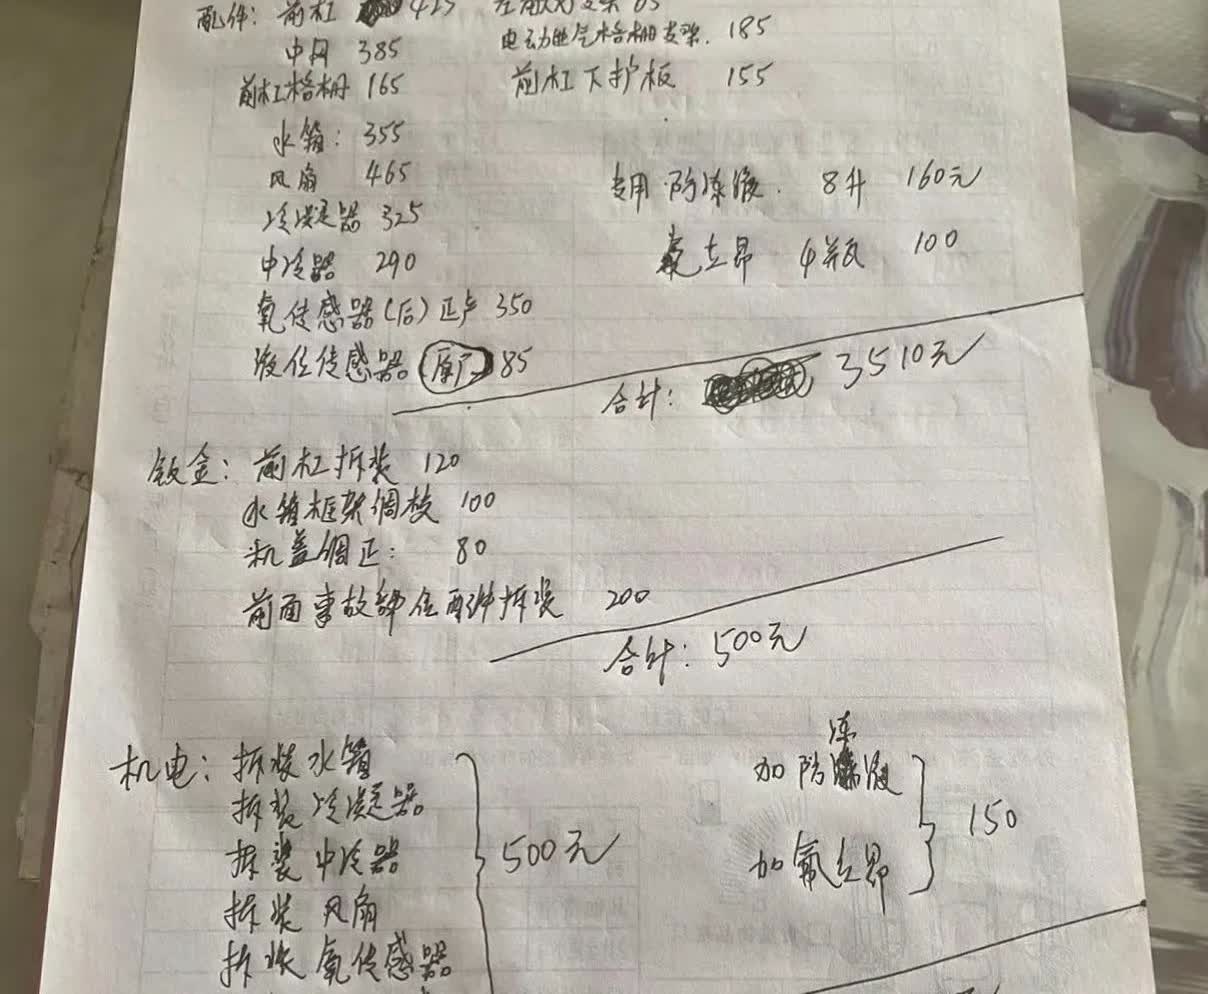 配件: 前杠 425
左 支架 65
中网 385
电动进气格栅支架. 185
前杠格栅 165
前杠下护板 155
水箱: 355
风扇 465
专用防冻液. 8升 160元
冷凝器 325
氟立昂 4瓶 100
中冷器 290
氧传感器(后)正产 350
液位传感器 原厂 85
合计: 3510元
钣金: 前杠拆装 120
水箱框架调校 100
机盖调正: 80
前面事故部位配件拆装 200
合计: 500元
机电: 拆装水箱
拆装冷凝器
拆装中冷器
拆装风扇
拆装氧传感器
500元
加防冻液
加氟立昂
150